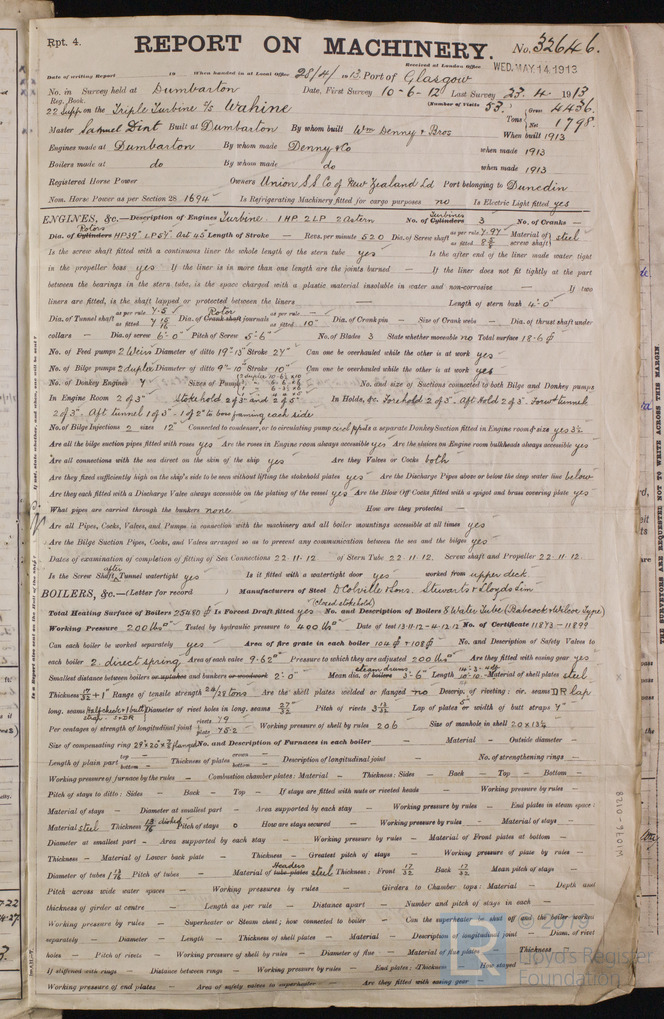 Rpt. 4.
REPORT ON MACHINERY.
No. 32646.
Received at London Office WED. MAY. 14 1913
Date of writing Report 19 When handed in at Local Office 28/4/1913 Port of Glasgow
No. in Survey held at Dumbarton Date, First Survey 10-6-12 Last Survey 23.4.1913
Reg. Book. (Number of Visits 53.)
22 Supp. on the Triple Turbine S/S Wahine Tons Gross 4436. Net 1798.
Master Samuel Dint Built at Dumbarton By whom built Wm Denny & Bros When built 1913
Engines made at Dumbarton By whom made Denny & Co when made 1913
Boilers made at do By whom made do when made 1913
Registered Horse Power Owners Union S.S. Co of New Zealand Ld Port belonging to Dunedin
Nom. Horse Power as per Section 28 1694 Is Refrigerating Machinery fitted for cargo purposes no Is Electric Light fitted yes
ENGINES, &c.—Description of Engines Turbine. 1 HP 2 LP 2 astern No. of Cylinders Turbines 3 No. of Cranks —
Dia. of Cylinders Rotors HP 39" LP 54" Ast 45" Length of Stroke — Revs. per minute 520 Dia. of Screw shaft as per rule 7.97 as fitted 8 3/8 Material of screw shaft steel
Is the screw shaft fitted with a continuous liner the whole length of the stern tube yes Is the after end of the liner made water tight
in the propeller boss yes If the liner is in more than one length are the joints burned — If the liner does not fit tightly at the part
between the bearings in the stern tube, is the space charged with a plastic material insoluble in water and non-corrosive — If two
liners are fitted, is the shaft lapped or protected between the liners — Length of stern bush 4'-0"
Dia. of Tunnel shaft as per rule 7.5 as fitted 7 15/16 Dia. of Crank shaft Rotor journals as per rule — as fitted 10" Dia. of Crank pin — Size of Crank webs — Dia. of thrust shaft under
collars — Dia. of screw 6'-0" Pitch of Screw 5'-6" No. of Blades 3 State whether moveable no Total surface 18.6
No. of Feed pumps 2 Weirs Diameter of ditto 19"-13" Stroke 24" Can one be overhauled while the other is at work yes
No. of Bilge pumps 2 duplex Diameter of ditto 9"-10" Stroke 10" Can one be overhauled while the other is at work yes
No. of Donkey Engines 4 Sizes of Pumps No. and size of Suctions connected to both Bilge and Donkey pumps
In Engine Room 2 of 3" Stokehold 2 of 3" and 2 of 5" In Holds, &c. Forehold 2 of 3". Aft Hold 2 of 3". Forwd tunnel
2 of 3". Aft tunnel 1 of 5" - 1 of 2" to box framing each side
No. of Bilge Injections 2 sizes 12" Connected to condenser, or to circulating pump circ pps Is a separate Donkey Suction fitted in Engine room & size yes 3½
Are all the bilge suction pipes fitted with roses yes Are the roses in Engine room always accessible yes Are the sluices on Engine room bulkheads always accessible yes
Are all connections with the sea direct on the skin of the ship yes Are they Valves or Cocks both
Are they fixed sufficiently high on the ship's side to be seen without lifting the stokehold plates yes Are the Discharge Pipes above or below the deep water line below
Are they each fitted with a Discharge Valve always accessible on the plating of the vessel yes Are the Blow Off Cocks fitted with a spigot and brass covering plate yes
What pipes are carried through the bunkers none How are they protected —
Are all Pipes, Cocks, Valves, and Pumps in connection with the machinery and all boiler mountings accessible at all times yes
Are the Bilge Suction Pipes, Cocks, and Valves arranged so as to prevent any communication between the sea and the bilges yes
Dates of examination of completion of fitting of Sea Connections 22.11.12. of Stern Tube 22.11.12. Screw shaft and Propeller 22.11.12.
Is the Screw Shaft after Tunnel watertight yes Is it fitted with a watertight door yes worked from upper deck.
BOILERS, &c.—(Letter for record ) Manufacturers of Steel D Colville & Sons. Stewarts & Lloyds Lim
Total Heating Surface of Boilers 25480 Is Forced Draft fitted yes (closed stokehold) No. and Description of Boilers 8 Water Tube (Babcock & Wilcox Type)
Working Pressure 200 lbs Tested by hydraulic pressure to 400 lbs Date of test 13.11.12 - 4.12.12 No. of Certificate 11873 - 11899
Can each boiler be worked separately yes Area of fire grate in each boiler 104 & 108 No. and Description of Safety Valves to
each boiler 2 direct spring Area of each valve 9.62" Pressure to which they are adjusted 200 lbs Are they fitted with easing gear yes
Smallest distance between boilers or uptakes and bunkers or woodwork 2'-0" Mean dia. of boilers steam drums 3'-6" Length Material of shell plates steel
Thickness 17/32 & 1" Range of tensile strength 24/28 tons Are the shell plates welded or flanged no Descrip. of riveting: cir. seams DR lap
long. seams Diameter of rivet holes in long. seams 27/32 Pitch of rivets 3 13/32 Lap of plates or width of butt straps 7"
Per centages of strength of longitudinal joint rivets 79 plate 75.2 Working pressure of shell by rules 206 Size of manhole in shell 20 x 13¼
Size of compensating ring flanged No. and Description of Furnaces in each boiler — Material — Outside diameter —
Length of plain part top bottom — Thickness of plates crown bottom — Description of longitudinal joint — No. of strengthening rings —
Working pressure of furnace by the rules — Combustion chamber plates: Material — Thickness: Sides — Back — Top — Bottom —
Pitch of stays to ditto: Sides — Back — Top — If stays are fitted with nuts or riveted heads — Working pressure by rules —
Material of stays — Diameter at smallest part — Area supported by each stay — Working pressure by rules — End plates in steam space:
Material steel Thickness 13/16 dished Pitch of stays o How are stays secured — Working pressure by rules — Material of stays —
Diameter at smallest part — Area supported by each stay — Working pressure by rules — Material of Front plates at bottom —
Thickness — Material of Lower back plate — Thickness — Greatest pitch of stays — Working pressure of plate by rules —
Diameter of tubes 1 13/16 Pitch of tubes — Material of tube plates Headers steel Thickness: Front 17/32 Back 17/32 Mean pitch of stays —
Pitch across wide water spaces — Working pressures by rules — Girders to Chamber tops: Material — Depth and
thickness of girder at centre — Length as per rule — Distance apart — Number and pitch of stays in each —
Working pressure by rules — Superheater or Steam chest; how connected to boiler — Can the superheater be shut off and the boiler worked
separately — Diameter — Length — Thickness of shell plates — Material — Description of longitudinal joint — Diam. of rivet
holes — Pitch of rivets — Working pressure of shell by rules — Diameter of flue — Material of flue plates — Thickness
If stiffened with rings — Distance between rings — Working pressure by rules — End plates: Thickness — How stayed
Working pressure of end plates — Area of safety valves to superheater — Are they fitted with easing gear
THE SURVEYORS ARE REQUESTED NOT TO WRITE ACROSS THIS MARGIN.
W1076-0128
© 2019
Lloyd's Register
Foundation